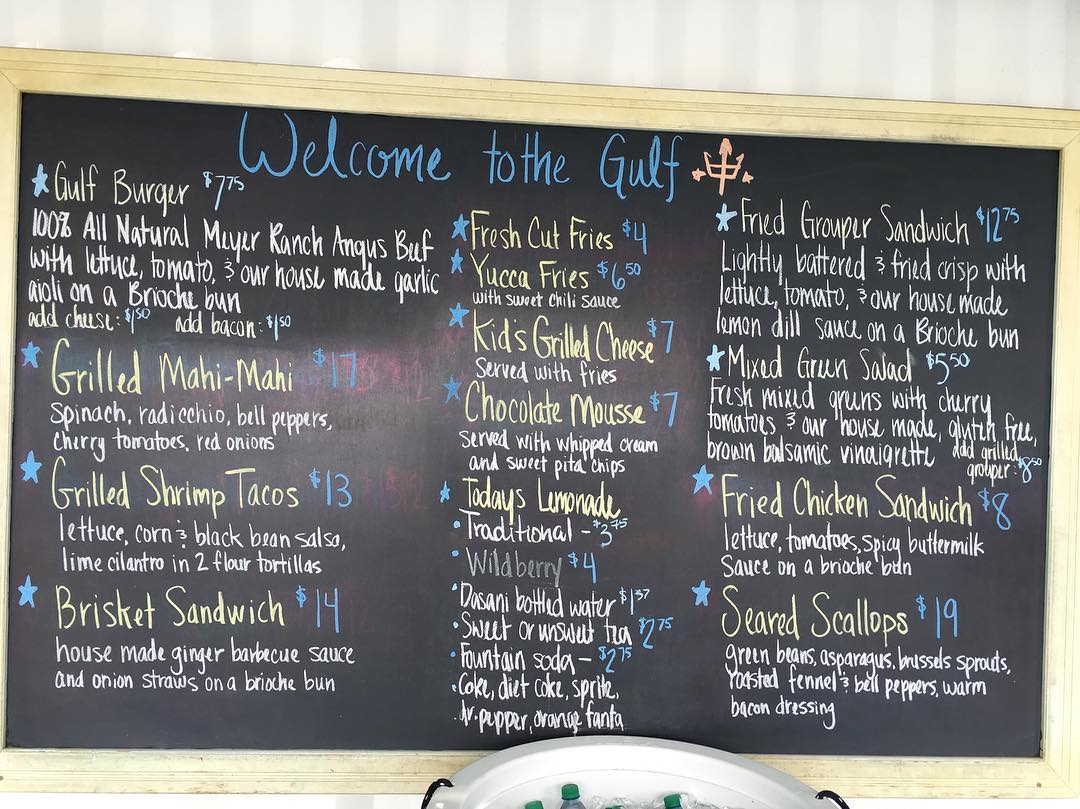 Welcome to the Gulf
Gulf Burger $7.75
100% All Natural Meyer Ranch Angus Beef
with lettuce, tomato, & our house made garlic
aioli on a Brioche bun
add cheese: $1.50 add bacon: $1.50
Grilled Mahi-Mahi $17
Spinach, radicchio, bell peppers,
cherry tomatoes, red onions
Grilled Shrimp Tacos $13
lettuce, corn & black bean salsa,
lime cilantro in 2 flour tortillas
Brisket Sandwich $14
house made ginger barbecue sauce
and onion straws on a brioche bun
Fresh Cut Fries $4
Yucca Fries $6.50
with sweet chili sauce
Kid's Grilled Cheese $7
Served with fries
Chocolate Mousse $7
Served with whipped cream
and sweet pita chips
Todays Lemonade
• Traditional -
• Wildberry $4
• Dasani bottled water $1.37
• Sweet or unsweet tea $2.75
• Fountain soda - $2.75
• Coke, diet coke, sprite,
• dr. pepper, orange fanta
Fried Grouper Sandwich $12.75
Lightly battered & fried crisp with
lettuce, tomato, & our house made
lemon dill sauce on a Brioche bun
Mixed Green Salad $5.50
Fresh mixed greens with cherry
tomatoes & our house made, gluten free,
brown balsamic vinaigrette add grilled
grouper: $8.50
Fried Chicken Sandwich $8
lettuce, tomatoes, spicy buttermilk
Sauce on a brioche bun
Seared Scallops $19
green beans, asparagus, brussels sprouts,
roasted fennel & bell peppers, warm
bacon dressing